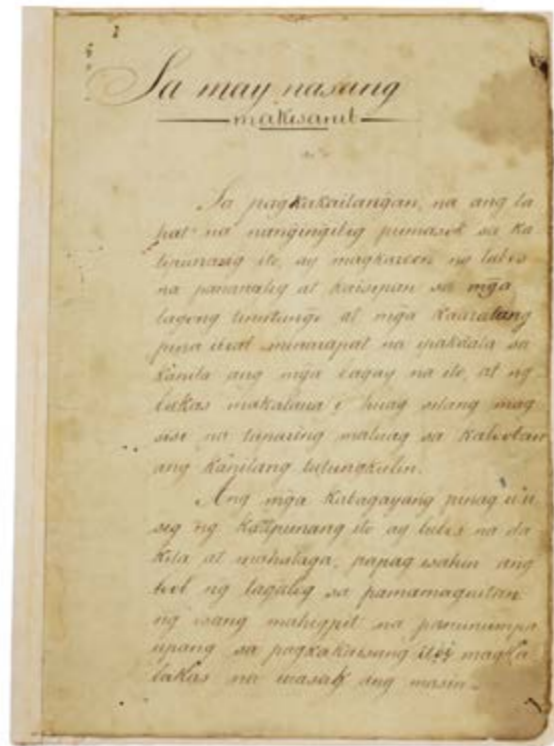 Sa may nasang
makisanib
Sa pagkakailangan, na ang la
pat na nangingibig pumasok sa ka
tipunang ito, ay magkaroon ng lubos
na pananalig at kaisipan sa mga
layong tinutungo at mga kaaralang
pina iiral minarapat na ipakilala sa
kanila ang mga bagay na ito, at ng
bukas makalawa i huag silang mag
sisi na tuparing maluag sa kalooban
ang kanilang tutungkulin.
Ang mga kabagayang pinag u u
sig ng katipunang ito ay lubos na da
kila at mahalaga, papag isahin ang
loob ng tagalog sa pamamaguitan
ng isang mahigpit na panunumpa
upang sa pagkakaisang ito'y magka
lakas na iwasak ang masin